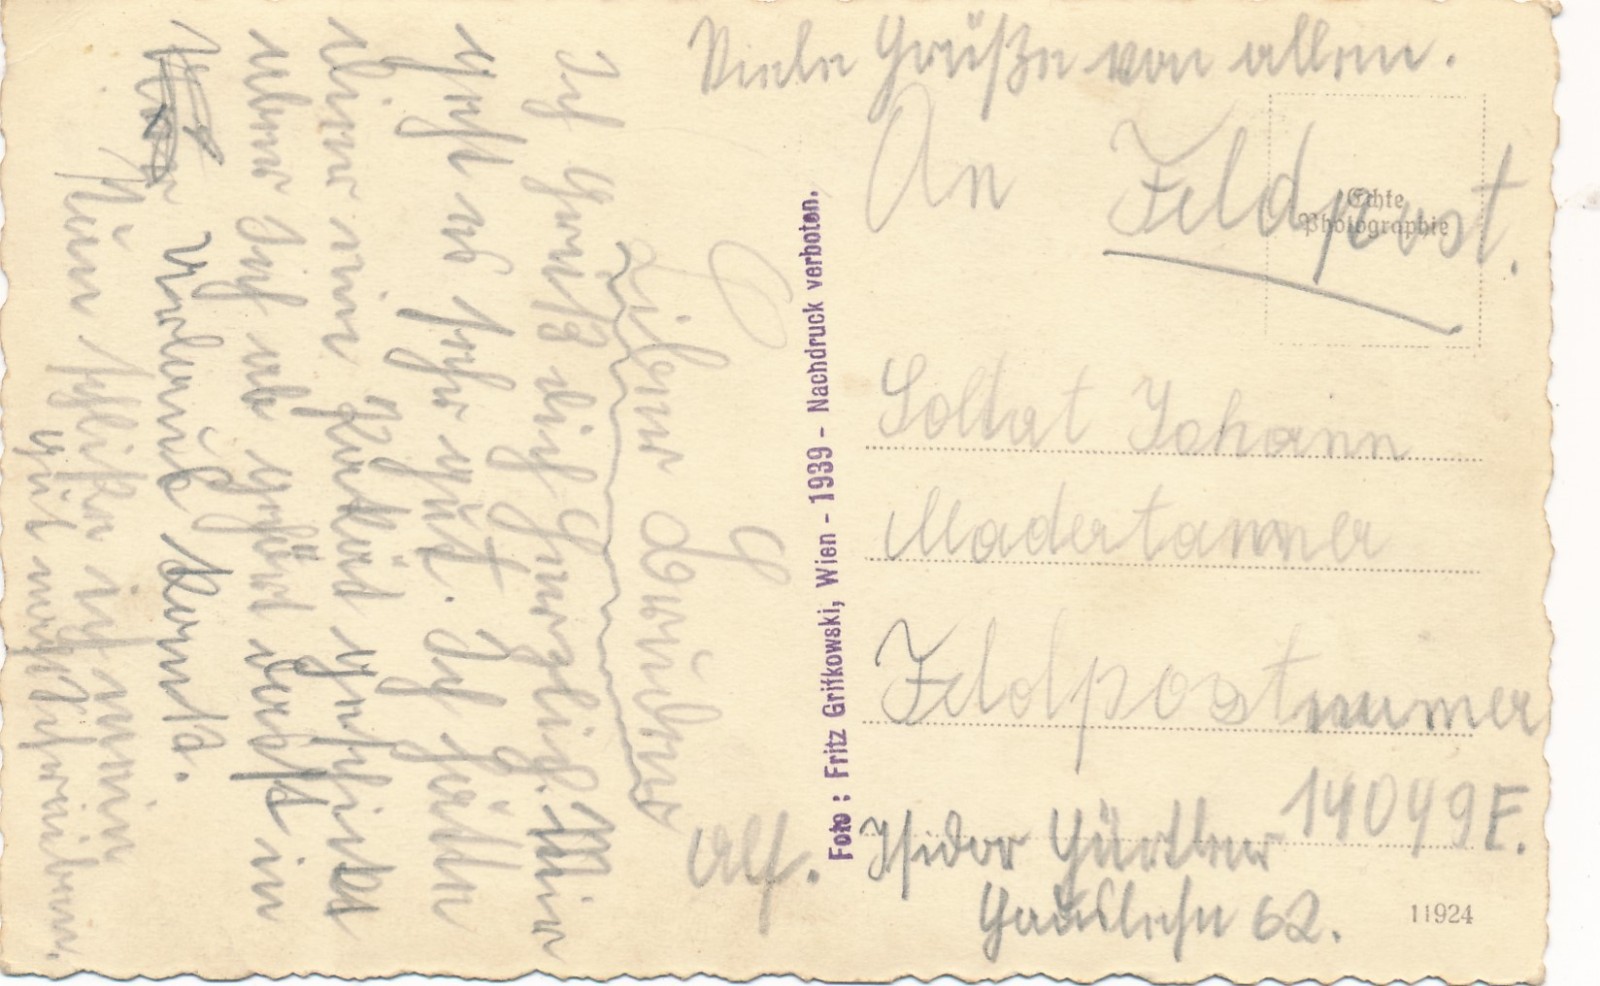 Viele Grüße von allen.
An Feldpost.
Echte
Photographie
Soltat Johann
Madertanner
Feldpostnummer
14049E.
Abs. Isidor Gürtler
62.
11924
Foto: Fritz Gritkowski, Wien - 1939 - Nachdruck verboten.
Lieber
Ich Grüße dich Herzlich. Mir
geht es sehr gut. Ich hätte
dir eine geschickt
aber Ich hab gehört daß in
Urlaub komst.
Nun schließe ich mein